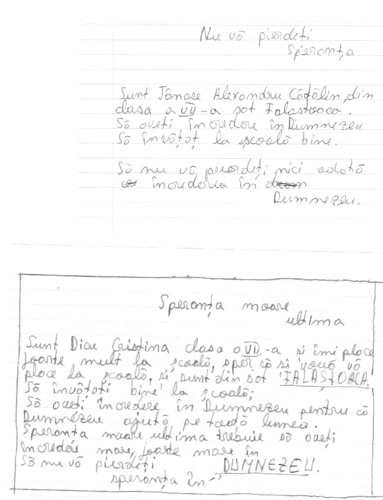 Nu vă pierdeți
Speranța
Sunt Tănase Alexandru Cătălin, din
clasa a VII-a sat Falastoaca.
Să aveți încredere în Dumnezeu
Să învățaț la școală bine.
Să nu vă pierdeți nici odată
încrederea în
Dumnezeu.
Speranța moare
ultima
Sunt Dicu Cristina clasa a VII-a si îmi place
foarte mult la școală, sper că si vouă vă
place la școală, si sunt din sat FALAȘTOACA.
Să învățați bine la școală;
Să aveți încredere în Dumnezeu pentru că
Dumnezeu ajută pe toată lumea.
Speranța moare ultima trebuie să aveți
încredere mare, foarte mare în
DUMNEZEU.
Să nu vă pierdeți
speranța în